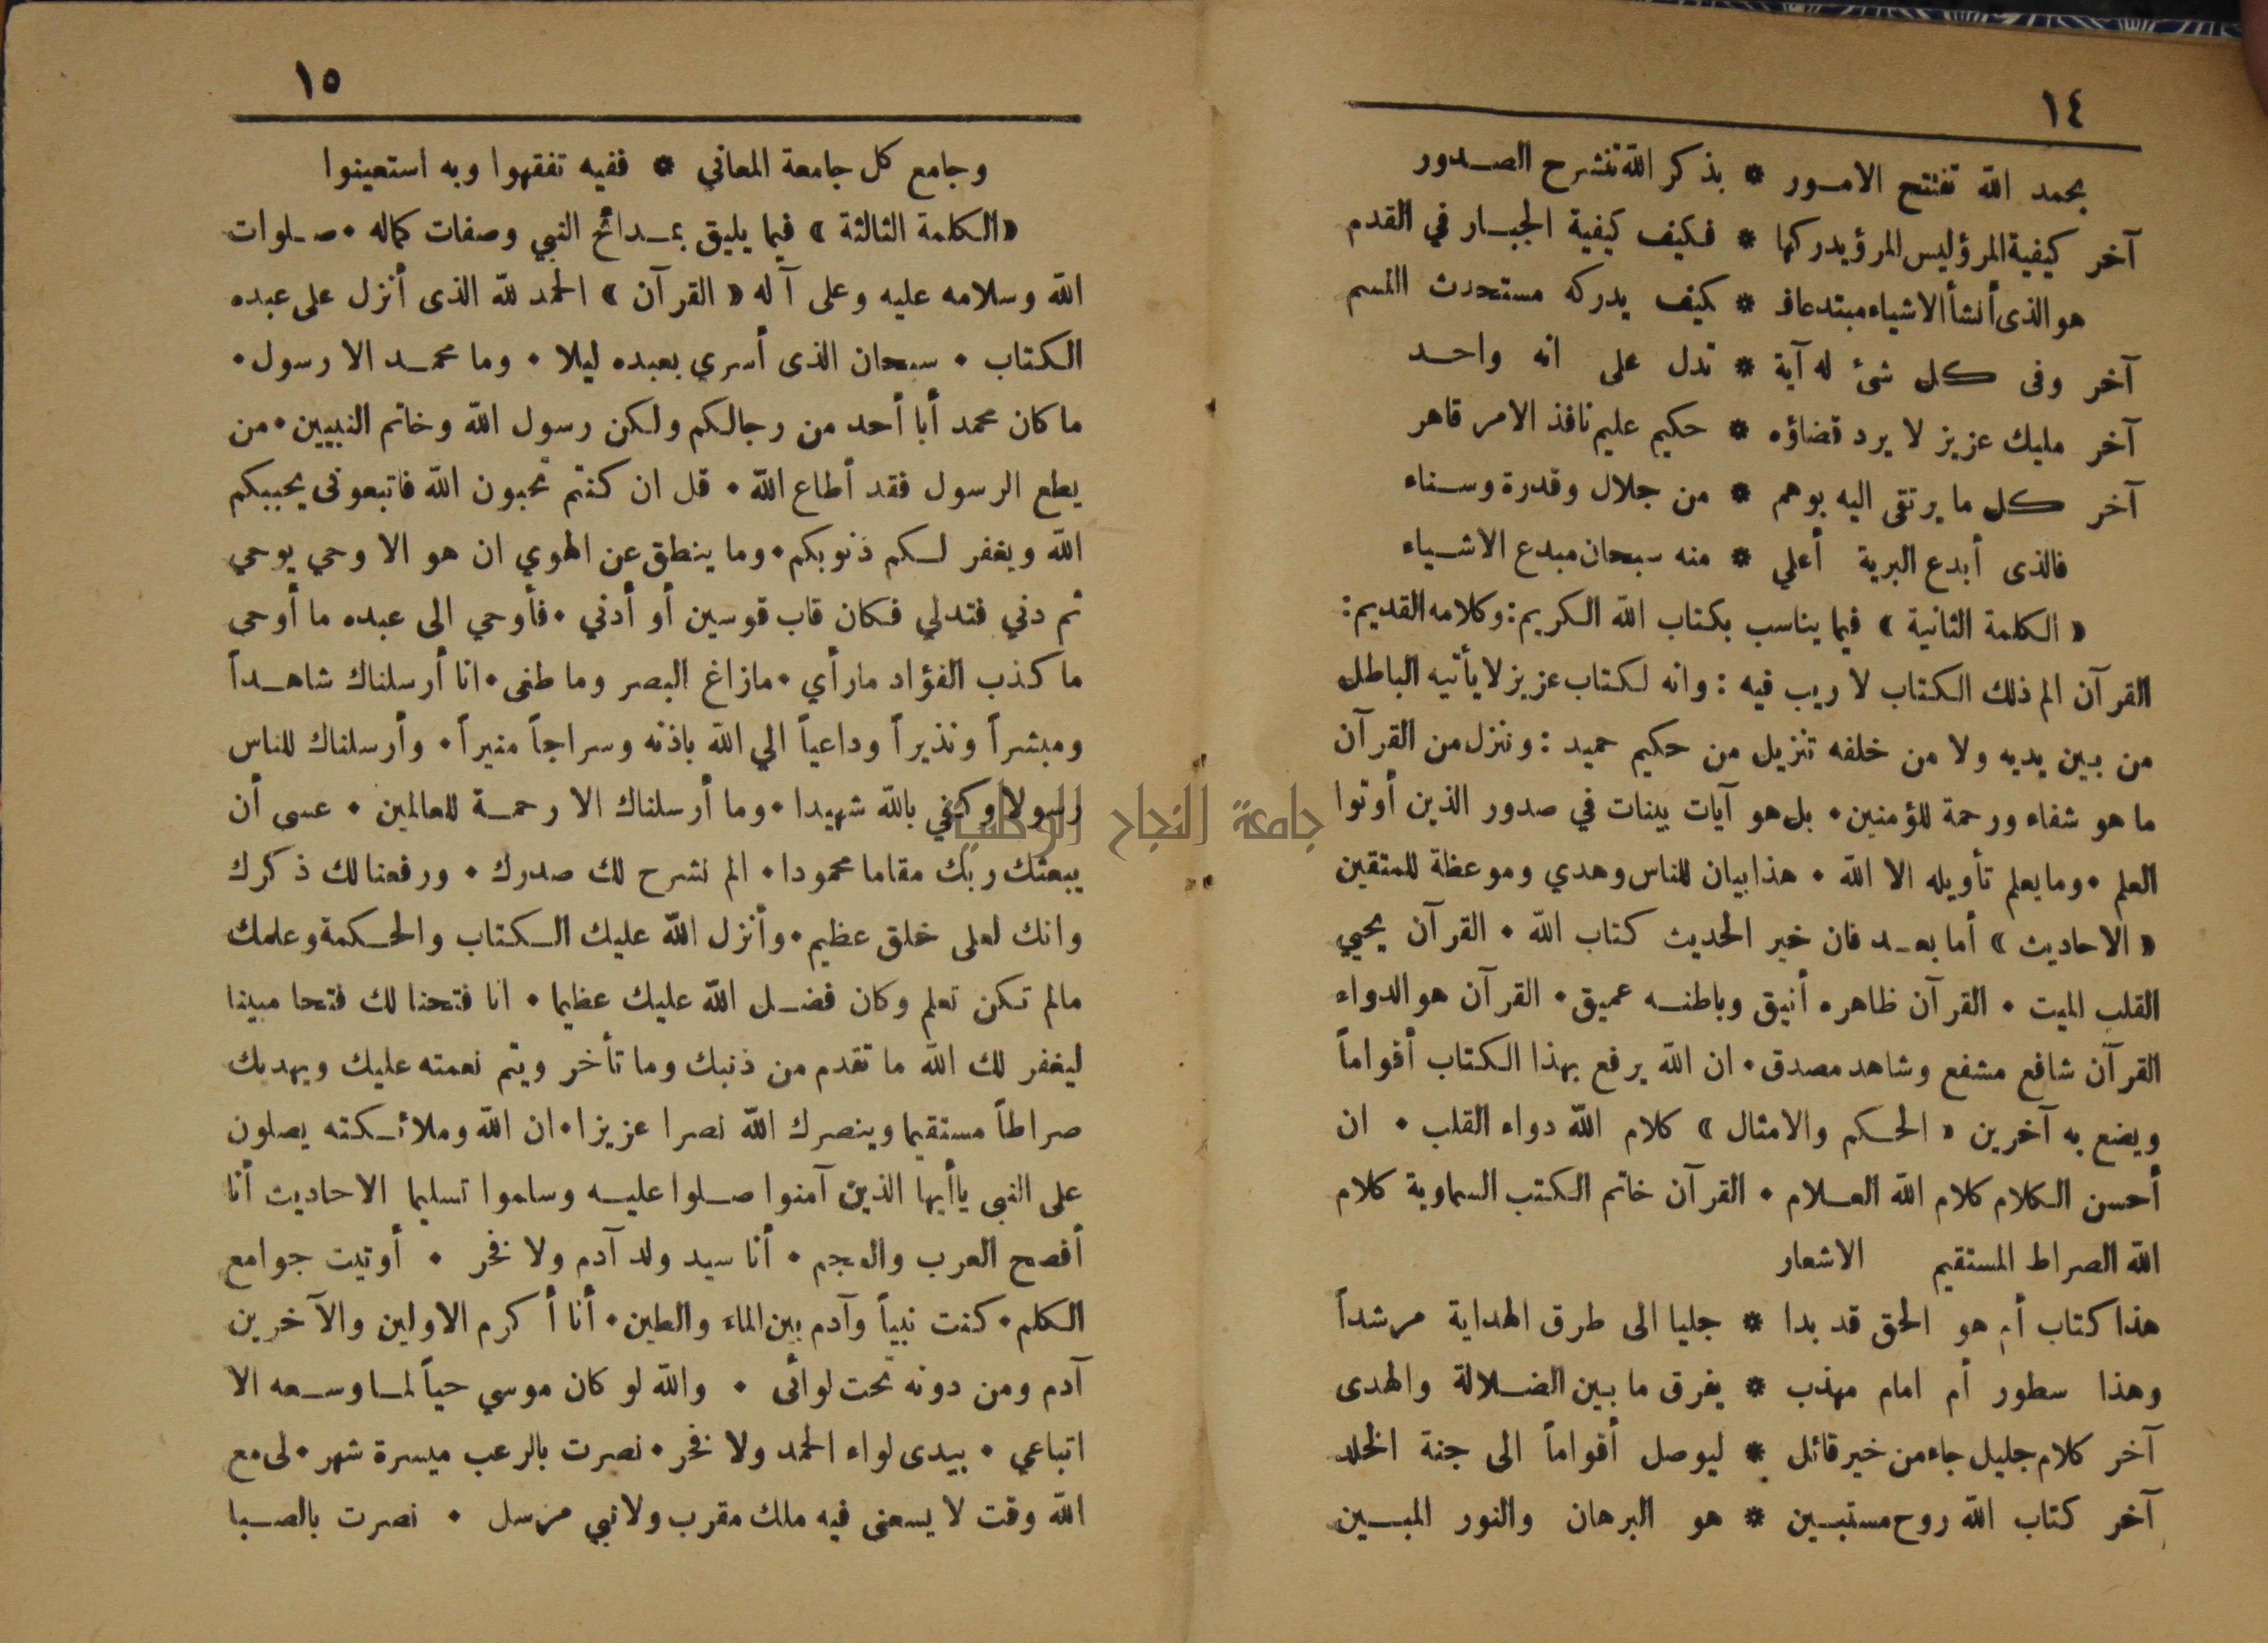 ١٤
بحمد الله تفتتح الامـور * بذكر الله تنشرح الصـدور
آخر كيفية المرؤ ليس المرؤ يدركها * فكيف كيفية الجبـار في القدم
هو الذى أنشأ الاشياء مبتدعاف * كيف يدركه مستحدث النسم
آخر وفى كل شئ له آية * تدل على انه واحـد
آخر مليك عزيز لا يرد قضاؤه * حكيم عليم نافذ الامر قاهر
آخر كل ما يرتقى اليه بوهم * من جلال وقدرة وسـناء
فالذى أبدع البرية أعلي * منه سبحان مبدع الاشـياء
« الكلمة الثانية » فيما يناسب بكتاب الله الكريم: وكلامه القديم:
القرآن الم ذلك الكتاب لا ريب فيه : وانه لكتاب عزيز لا يأتيه الباطل
من بين يديه ولا من خلفه تنزيل من حكيم حميد : وننزل من القرآن
ما هو شفاء ورحمة للمؤمنين • بل هو آيات بينات في صدور الذين أوتوا
العلم • وما يعلم تأويله الا الله • هذا بيان للناس وهدي وموعظة للمتقين
« الاحاديث » أما بعـد فان خير الحديث كتاب الله • القرآن يحيي
القلب الميت • القرآن ظاهره أنيق وباطنـه عميق • القرآن هو الدواء
القرآن شافع مشفع وشاهد مصدق • ان الله يرفع بهذا الكتاب أقواماً
ويضع به آخرين « الحـكم والامثال » كلام الله دواء القلب • ان
أحسن الكلام كلام الله العـلام • القرآن خاتم الكتب السماوية كلام
الله الصراط المستقيم الاشعار
هذا كتاب أم هو الحق قد بدا * جليا الى طرق الهداية مرشداً
وهذا سطور أم امام مهذب * يفرق ما بين الضـلالة والهدى
آخر كلام جليل جاء من خير قائل * ليوصل أقواماً الى جنة الخلد
آخر كتاب الله روح مستبـين * هو البرهان والنور المبـين
١٥
وجامع كل جامعة المعاني * ففيه تفقهوا وبه استعينوا
« الكلمة الثالثة » فيما يليق بمـدائح النبي وصفات كماله • صـلوات
الله وسلامه عليه وعلى آله « القرآن » الحمد لله الذى أنزل على عبده
الكتاب • سبحان الذى أسري بعبده ليلا • وما محمـد الا رسول •
ما كان محمد أبا أحد من رجالكم ولكن رسول الله وخاتم النبيين • من
يطع الرسول فقد أطاع الله • قل ان كنتم تحبون الله فاتبعونى يحببكم
الله ويغفر لـكم ذنوبكم • وما ينطق عن الهوي ان هو الا وحي يوحي
ثم دني فتدلي فكان قاب قوسين أو أدني • فأوحي الى عبده ما أوحى
ما كذب الفؤاد مارأي • مازاغ البصر وما طغى • انا أرسلناك شاهـداً
ومبشراً ونذيراً وداعياً الي الله باذنه وسراجاً منيراً • وأرسلناك للناس
رسولا وكفي بالله شهيدا • وما أرسلناك الا رحمـة للعالمين • عسى أن
يبعثك ربك مقاما محمودا • الم نشرح لك صدرك • ورفعنا لك ذكرك
وانك لعلى خلق عظيم • وأنزل الله عليك الـكتاب والحـكمة وعلمك
مالم تـكن تعلم وكان فضـل الله عليك عظيما • انا فتحنا لك فتحا مبينا
ليغفر لك الله ما تقدم من ذنبك وما تأخر ويتم نعمته عليك ويهديك
صراطاً مستقيما وينصرك الله نصرا عزيزا • ان الله وملائـكته يصلون
على النبى ياأيها الذين آمنوا صـلوا عليـه وسلموا تسليما الاحاديث أنا
أفصح العرب والعجم • أنا سيد ولد آدم ولا فخر • أوتيت جوامع
الكلم • كنت نبياً وآدم بين الماء والطين • أنا أكرم الاولين والآخرين
آدم ومن دونه تحت لوائى • والله لو كان موسي حياً لمـا وسـعه الا
اتباعي • بيدى لواء الحمد ولا فخر • نصرت بالرعب ميسرة شهر • لى مع
الله وقت لا يسعنى فيه ملك مقرب ولا نبي مرسل • نصرت بالصـبا
جامعة النجاح الوطنية